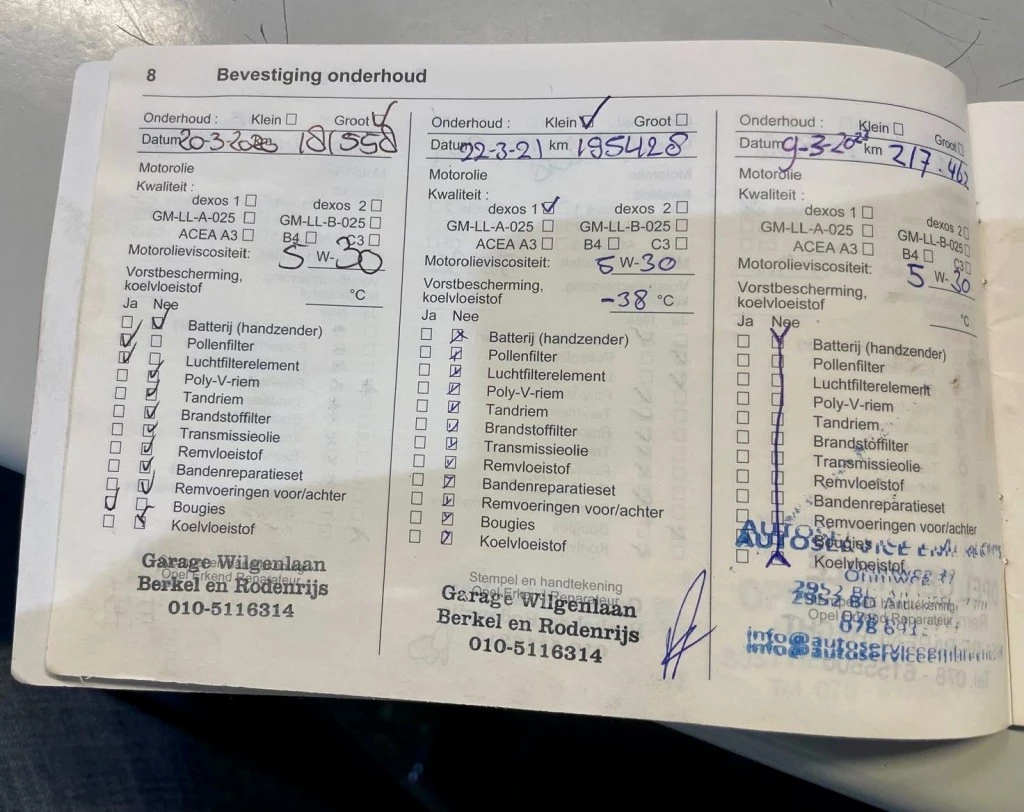 8 Bevestiging onderhoud
Onderhoud : Klein Groot
Datum 20-3-20 181558
Motorolie
Kwaliteit :
dexos 1 dexos 2
GM-LL-A-025 GM-LL-B-025
ACEA A3 B4 C3
Motorolieviscositeit: 5 W-30
Vorstbescherming,
koelvloeistof °C
Ja Nee
Batterij (handzender)
Pollenfilter
Luchtfilterelement
Poly-V-riem
Tandriem
Brandstoffilter
Transmissieolie
Remvloeistof
Bandenreparatieset
Remvoeringen voor/achter
Bougies
Koelvloeistof
Opel Erkend Reparateur
Garage Wilgenlaan
Berkel en Rodenrijs
010-5116314
Onderhoud : Klein Groot
Datum 22-3-21 km 195428
Motorolie
Kwaliteit :
dexos 1 dexos 2
GM-LL-A-025 GM-LL-B-025
ACEA A3 B4 C3
Motorolieviscositeit: 5 W-30
Vorstbescherming,
koelvloeistof -38 °C
Ja Nee
Batterij (handzender)
Pollenfilter
Luchtfilterelement
Poly-V-riem
Tandriem
Brandstoffilter
Transmissieolie
Remvloeistof
Bandenreparatieset
Remvoeringen voor/achter
Bougies
Koelvloeistof
Stempel en handtekening
Opel Erkend Reparateur
Garage Wilgenlaan
Berkel en Rodenrijs
010-5116314
Onderhoud : Klein Groot
Datum 9-3-20 km 217.462
Motorolie
Kwaliteit :
dexos 1 dexos 2
GM-LL-A-025 GM-LL-B-025
ACEA A3 B4 C3
Motorolieviscositeit: 5 W-30
Vorstbescherming,
koelvloeistof °C
Ja Nee
Batterij (handzender)
Pollenfilter
Luchtfilterelement
Poly-V-riem
Tandriem
Brandstoffilter
Transmissieolie
Remvloeistof
Bandenreparatieset
Remvoeringen voor/achter
Bougies
Koelvloeistof
handtekening
Opel Erkend Reparateur
AUTOSERVICE
2952 BD
078 641